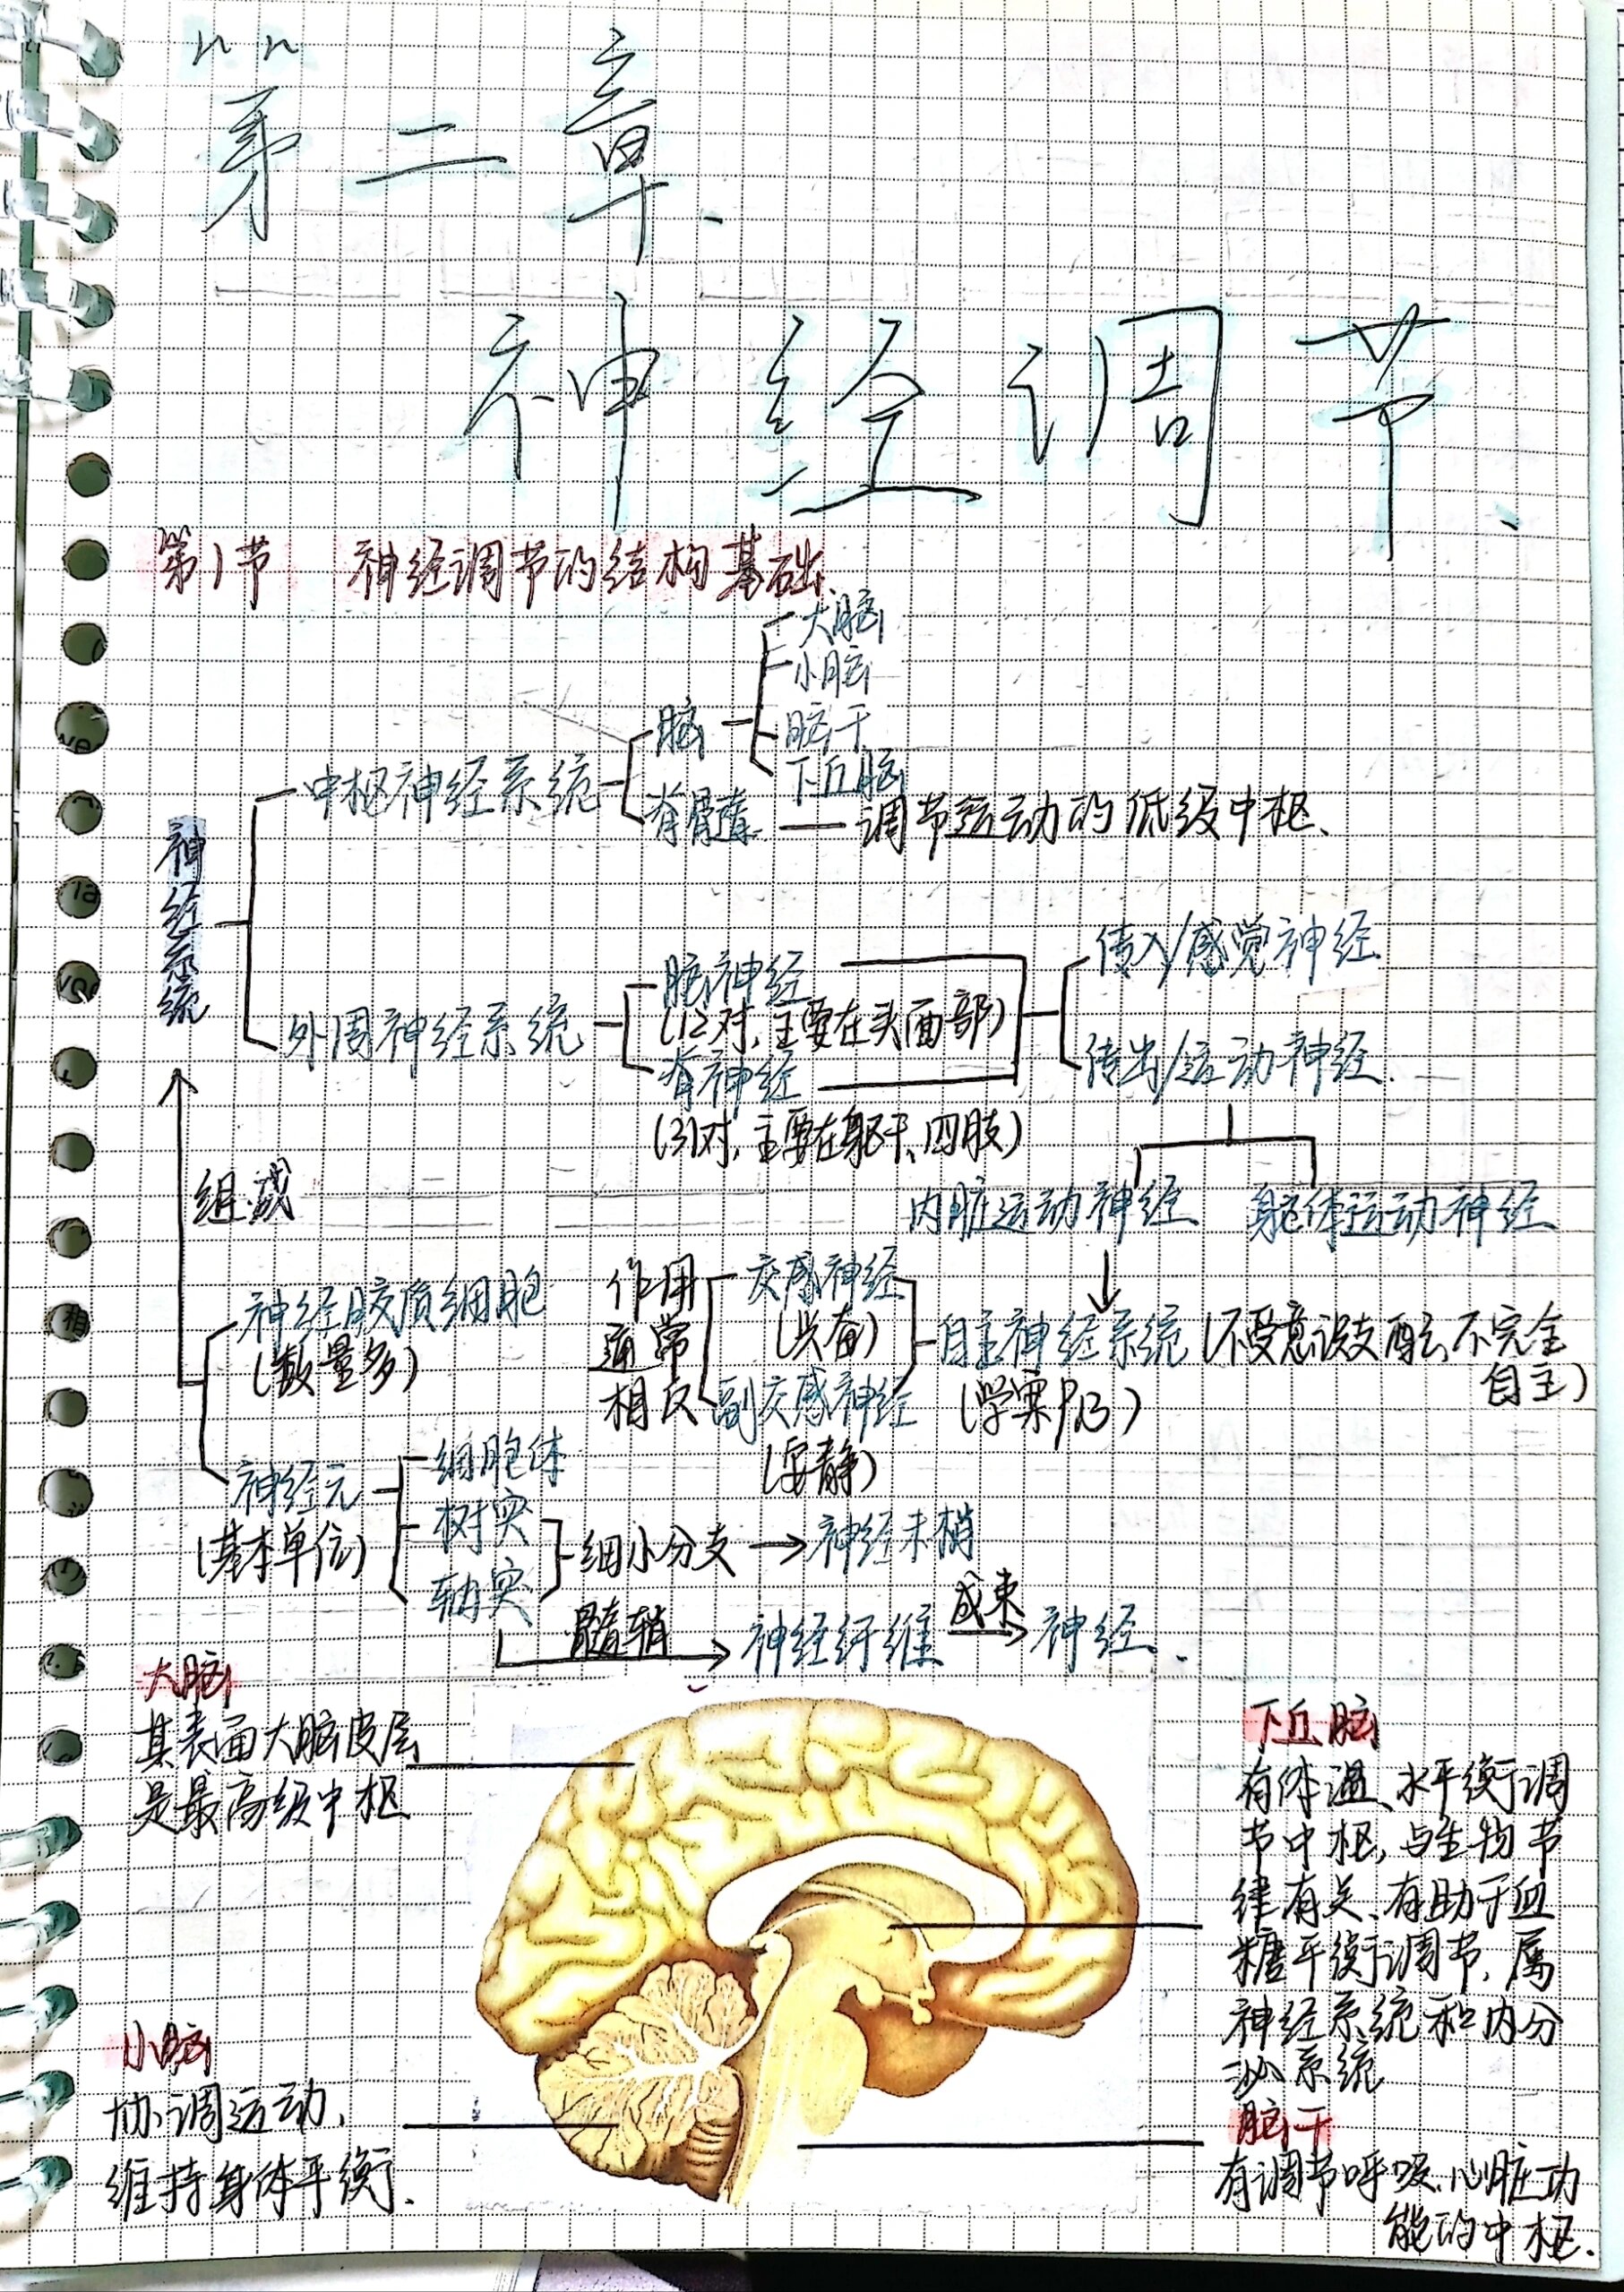 第二章.
神经调节.
第1节 神经调节的结构基础
大脑
小脑
脑
脑干
下丘脑
中枢神经系统
脊髓 调节运动的低级中枢.
神经系统
传入/感觉神经
脑神经
(12对,主要在头面部)
外周神经系统
脊神经
传出/运动神经.
(31对,主要在躯干、四肢)
组成
内脏运动神经 躯体运动神经
神经胶质细胞
(数量多)
作用通常相反
交感神经
(兴奋)
自主神经系统 (不受意识支配,不完全自主)
副交感神经 (学案P13)
(安静)
细胞体
神经元
树突
(基本单位)
细小分支 神经末梢
轴突
髓鞘 神经纤维 成束 神经.
大脑
其表面大脑皮层
是最高级中枢
下丘脑
有体温、水平衡调
节中枢,与生物节
律有关、有助于血
糖平衡调节,属
神经系统和内分
泌系统
小脑
协调运动、
维持身体平衡.
脑干
有调节呼吸、心脏功
能的中枢.